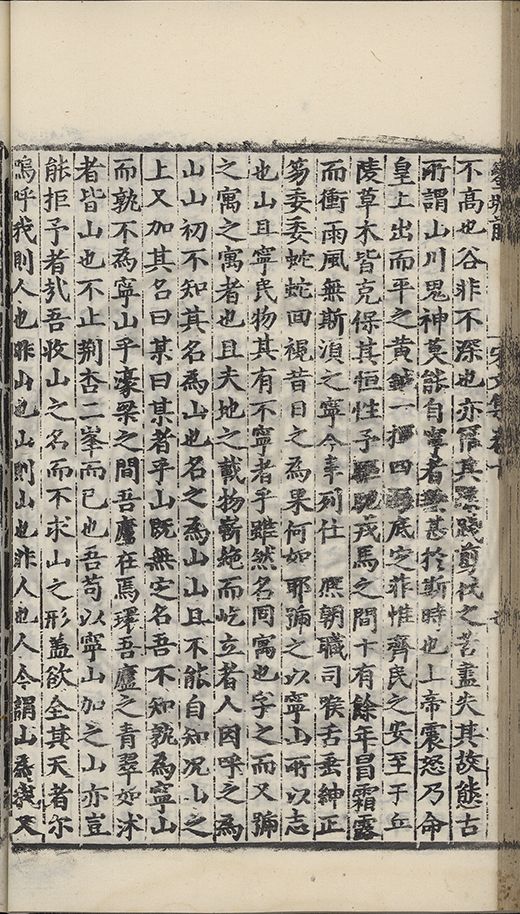 不高也谷非不深也亦罹其踐剪伐之苦盡失其故態古
所謂山川鬼神莫能自寧者甚於斯時也上帝震怒乃命
皇上出而平之黃鉞一揮四海底定非惟齊民之安至于丘
陵草木皆克保其恒性予馳戎馬之間十有餘年冒霜露
而衝雨風無斯湏之寧今幸列仕熈朝職司喉舌垂紳正
笏委委蛇蛇回視昔日之為果何如耶號之以寧山所以志
也山且寧民物其有不寧者乎雖然名同寓也字之而又號
之寓之寓者也且夫地之載物嶄絶而屹立者人因呼之為
山山初不知其名為山也名之為山山且不能自知况山之
上又加其名曰某曰某者乎山既無定名吾不知孰為寧山
而孰不為寧山乎濠梁之間吾廬在焉環吾廬之青翠如沐
者皆山也不止荆杏二峯而已也吾苟以寧山加之山亦豈
能拒予者㢤吾收山之名而不求山之形盖欲全其天者尔
嗚呼我則人也非山也山則山也非人也人今謂山為我天
宋文集卷十